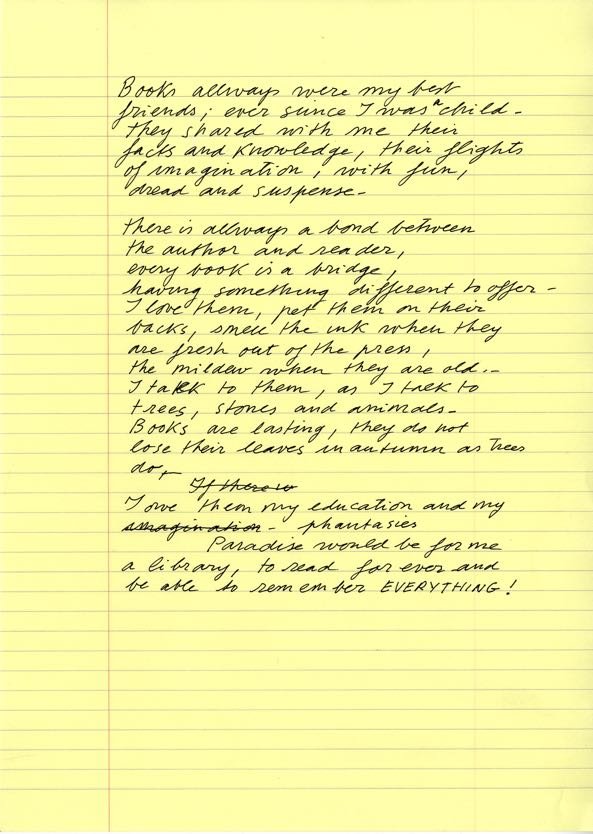 Books allways were my best
friends; ever since I was a child -
they shared with me their
facts and knowledge, their flights
of imagination, with fun,
dread and suspense -
there is allways a bond between
the author and reader,
every book is a bridge,
having something different to offer -
I love them, pet them on their
backs, smell the ink when they
are fresh out of the press,
the mildew when they are old. -
I talk to them, as I talk to
trees, stones and animals -
Books are lasting, they do not
lose their leaves in autumn as trees
do, -
If there is
I owe them my education and my
imagination - phantasies
Paradise would be for me
a library, to read for ever and
be able to remember EVERYTHING!